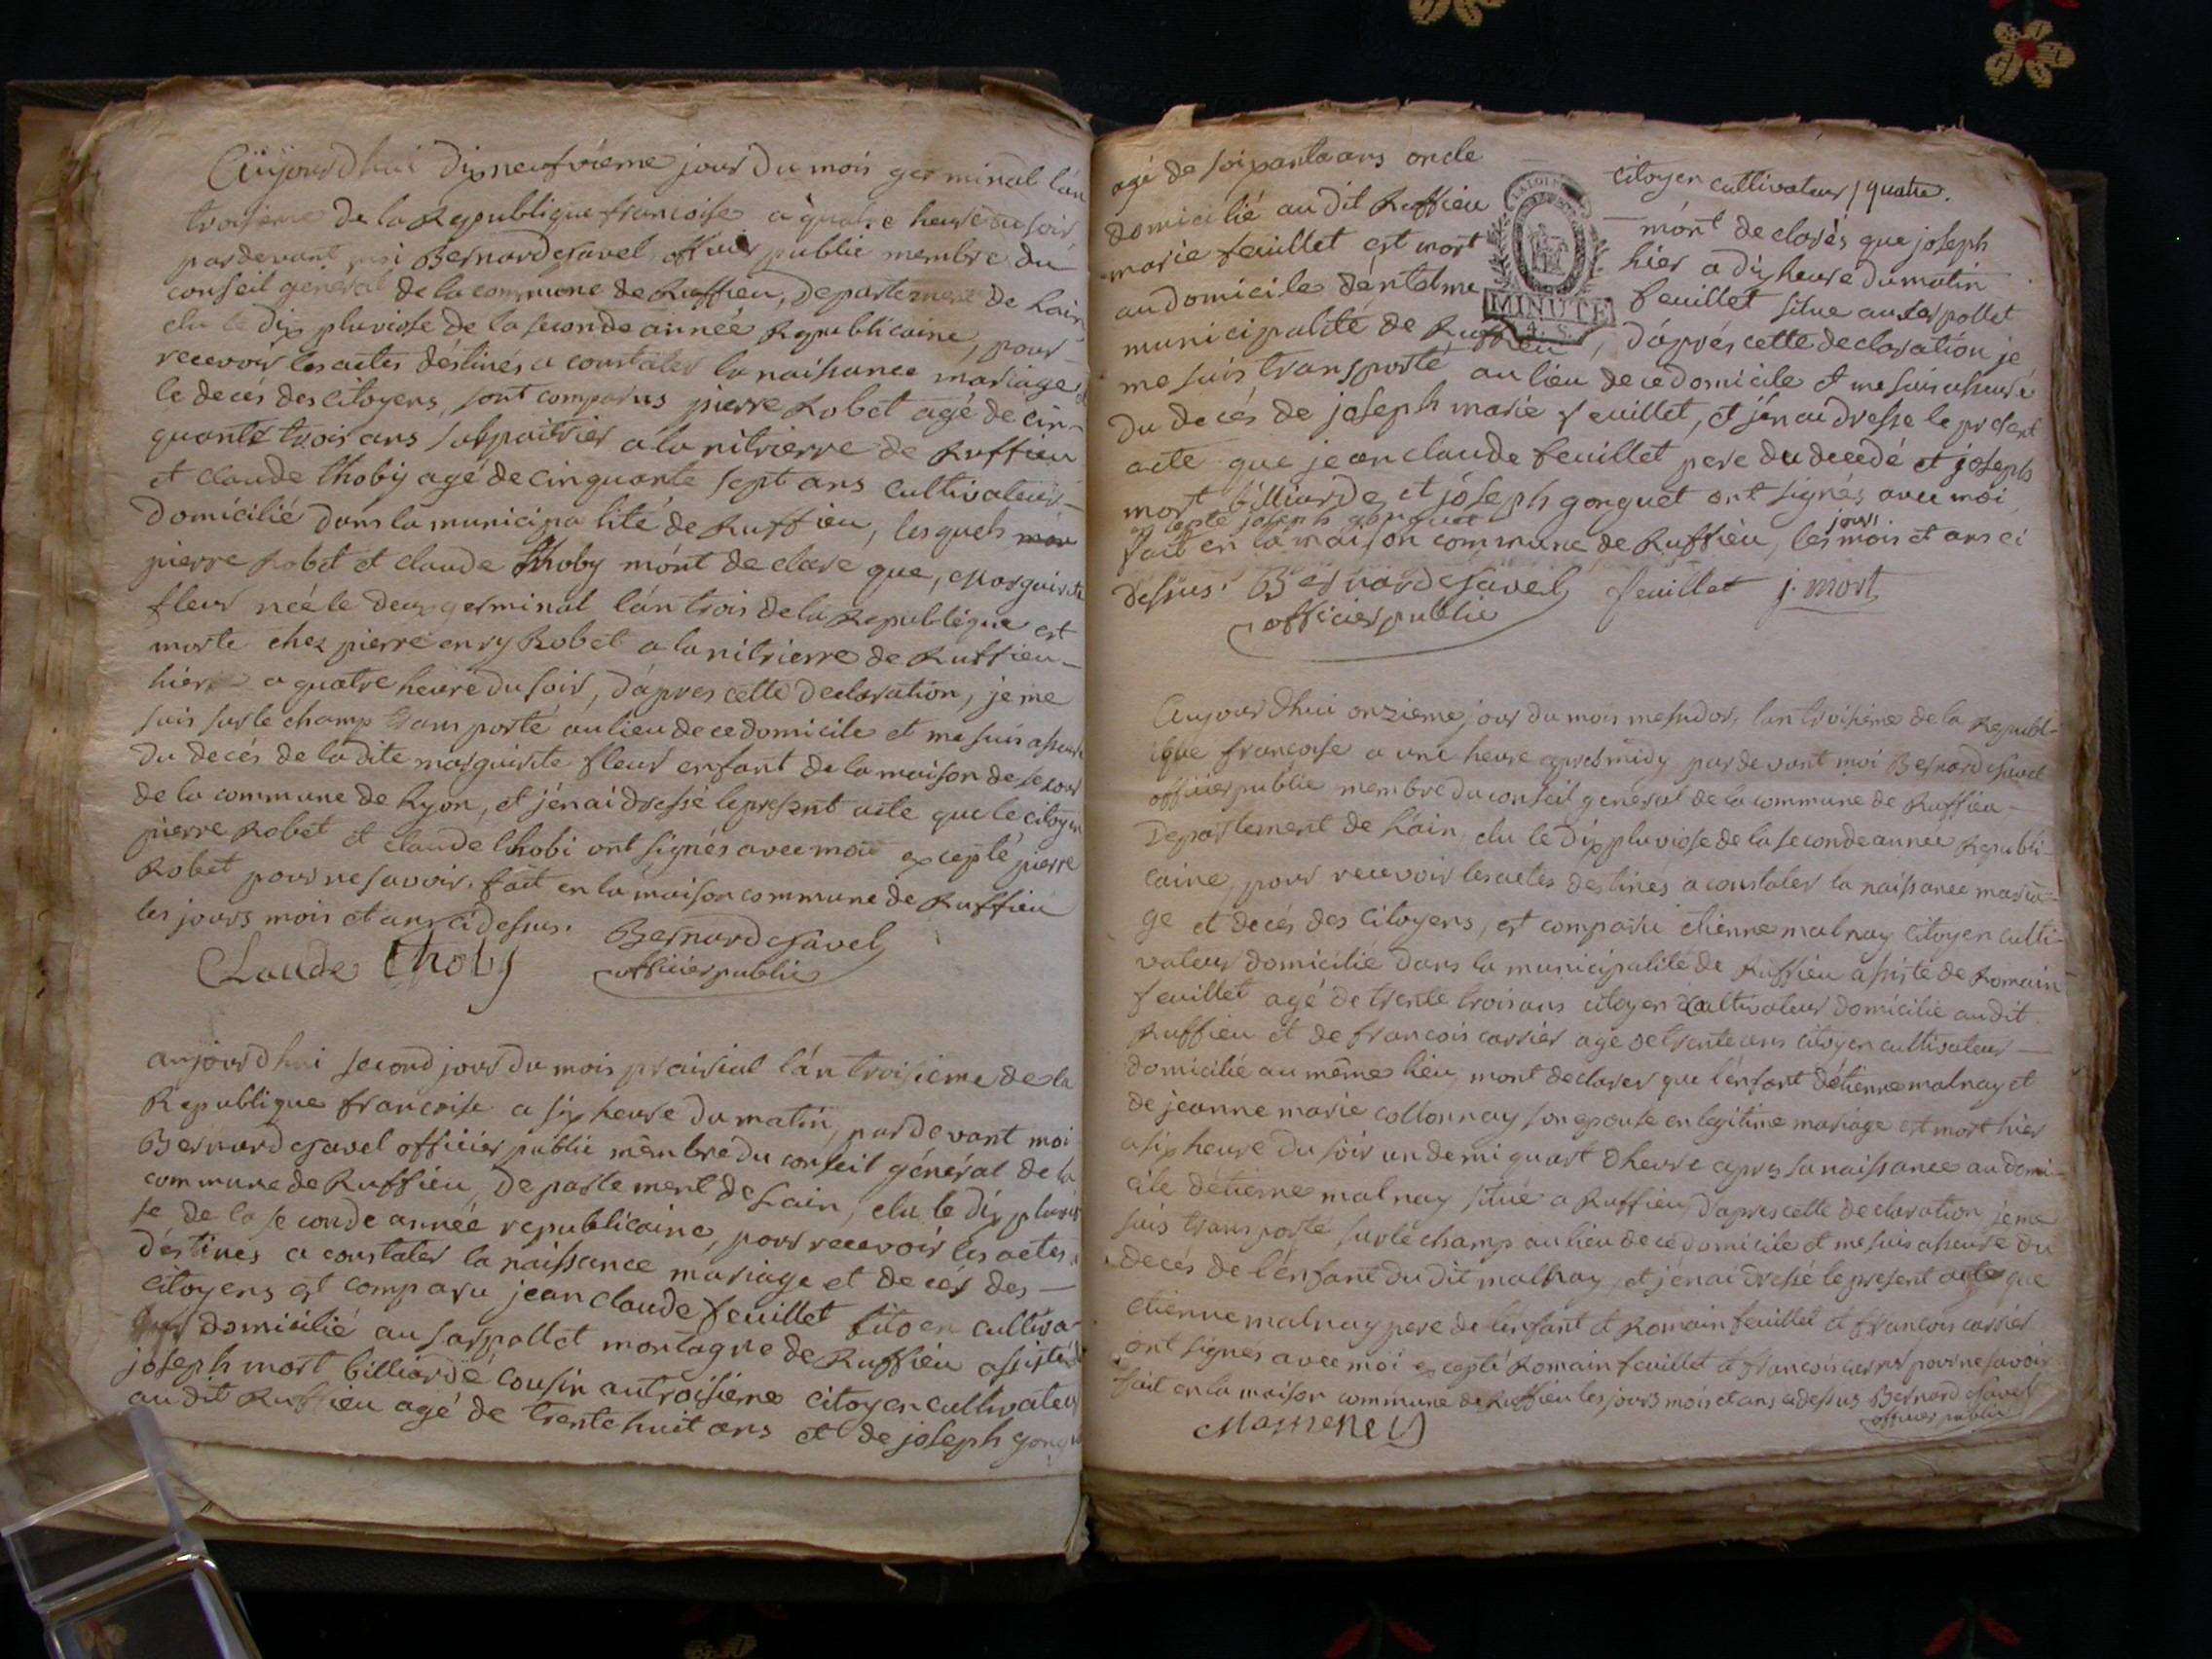 Aujourdhui dixneufvieme jour du mois germinal l'an
troisieme de la Republique francoise a quatre heure du soir
pardevant moi Bernard Savel officier public membre du
conseil general de la commune de Ruffieu, departement de Lain
elu le dix pluviose de la seconde année Republicaine, pour
recevoir les actes déstinés a constater la naissance mariage et
le decés des citoyens, sont comparus pierre Robet agé de cin-
quante trois ans salpaitrier a la nitrierre de Ruffieu
et claude thoby agé de cinquante sept ans cultivateur
domicilié dans la municipalité de Ruffieu, lesquels
pierre Robet et claude thoby mónt declaré que, Marguirite
fleur neé le deux germinal l'án trois de la Republique est
morte chez pierre enry Robet a la nitrierre de Ruffieu
hier a quatre heure du soir, dápres cette declaration, je me
suis sur le champ transporté au lieu de ce domicile et me suis assuré
du decés de la dite marguirite fleur enfant de la maison de
de la commune de Lyon, et jénai dressé le present acte que le citoyen
pierre Robet et claude thobi ont signés avec moi excepté pierre
Robet pour ne savoir. fait en la maison commune de Ruffieu
les jours mois et ans ci dessus. Bernard Savel
Claude thoby officier public
aujourdhui second jour du mois prairial l'án troisieme de la
Republique francoise a six heure du matin, pardevant moi
Bernard Savel officier public membre du conseil général de la
commune de Ruffieu, departement de Lain, elu le dix pluvio
se de la seconde année republicaine, pour recevoir les actes
déstines a constater la naissance mariage et decés des
citoyens est comparu jean claude feuillet citoen cultiva-
teur domicilié au sarpollet montagne de Ruffieu assisté
joseph mort billiardé cousin au troisiéme citoyen cultivateur
au dit Ruffieu agé de trente huit ans et de joseph gongu
agé de soixante ans oncle citoyen cultivateur, quatre.
domicilié au dit Ruffieu mónt declarés que joseph
marie feuillet est mort hier a dix heure du matin
au domicile feuillet situe au sarpollet
LA LOI
MINUTE
municipalité de Ruffieu, dáprés cette declaratión je
me suis transporté au lieu de ce domicile et me suis assuré
du decés de joseph marie feuillet, et jénai dresse le present
acte que jean claude feuillet pere du decedé et joseph
mort billiardé et jóseph gonguet ont signés avec moi
excepté joseph gonguet
fait en la maison commune de Ruffieu, les jours mois et ans ci
dessus. Bernard Savel feuillet j. mort
officier public
Aujourdhui onzieme jour du mois messidor, lan troisieme de la Republi-
que francoise a une heure apres midy pardevant moi Bernard Savel
officier public membre du conseil general de la commune de Ruffieu
Departement de Láin, elu le dix pluviose de la seconde année Republi-
caine, pour recevoir les actes destines a constater la naissance maria-
ge et decés des citoyens, est comparu etienne malnay citoyen culti-
vateur domicilié dans la municipalité de Ruffieu assisté de Romain
feuillet agé de trente trois ans citoyen cultivateur domicilie au dit
Ruffieu et de francois carrier agé de trente ans citoyen cultivateur
domicilié au même lieu, mont declarer que lénfant détienne malnay et
de jeanne marie collonnay son epouse en legitime mariage est mort hier
a six heure du soir un demi quart dheure apres sa naissance au domi-
cile détienne malnay situé a Ruffieu, dapres cette declaration je me
suis transporté sur le champ au lieu de ce domicile et me suis assuré du
decés de lénfant du dit malnay, et jénai dressé le present acte que
etienne malnay pere de lenfant et Romain feuillet et francois carrier
ont signes avec moi excepté Romain feuillet et francois carrier pour ne savoir
fait en la maison commune de Ruffieu les jours mois et ans ci dessus Bernard Savel
officier public